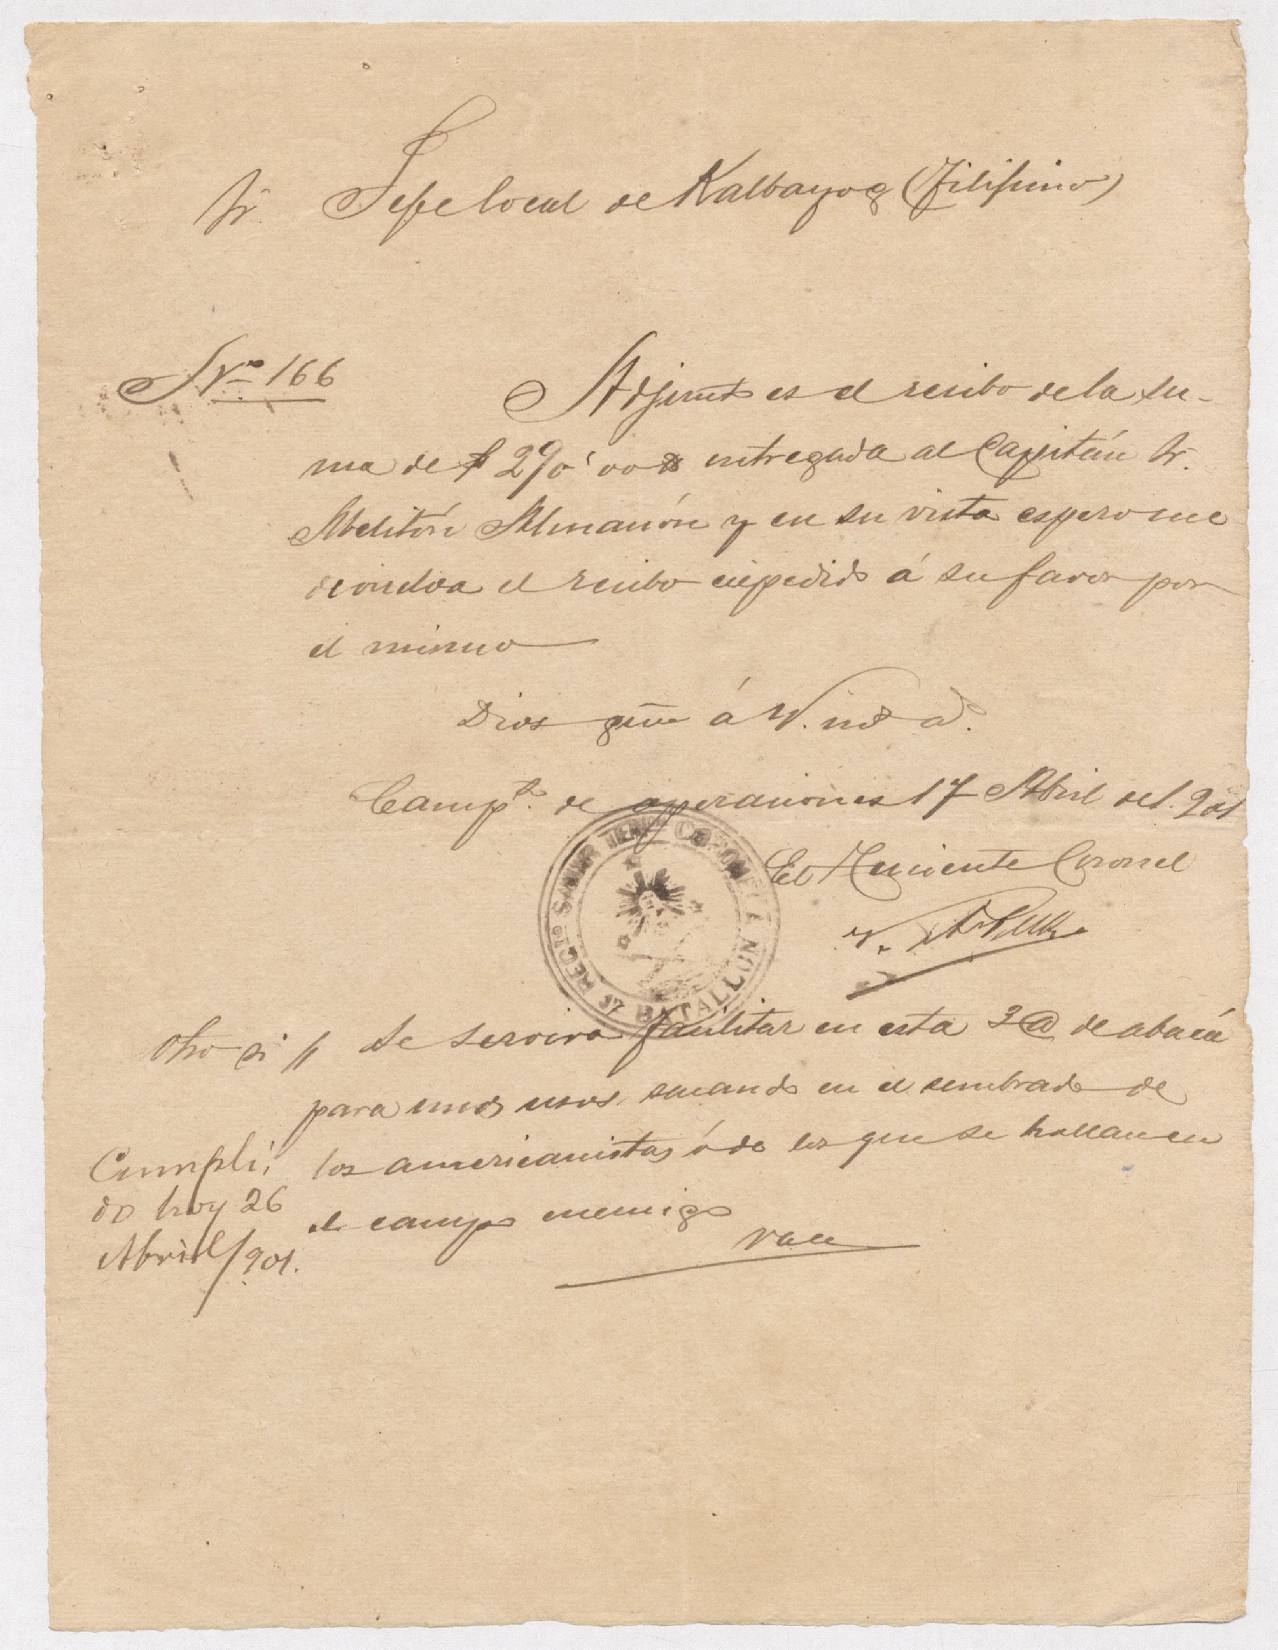 Sr. Jefe local de Kalbayog (Filipino)
Nº 166
Adjunto es el recibo de la su-
ma de $ 290'00 entregada al Capitán Sr.
Melitón Almanón y en su vista espero me
devuelva el recibo expedido á su favor por
el mismo
Dios gũe á V. ms a.
Campto. de operaciones 17 Abril de 1.901
El Teniente Coronel
COLUMNA
BATALLON
REGTO
Otro si // Se servirá facilitar en esta 3 @ de abacá
para unos usos, sacando en el sembrado de
los americanistas ó de los que se hallan en
el campo enemigo
Vale
Cumpli-
do hoy 26
Abril/901.